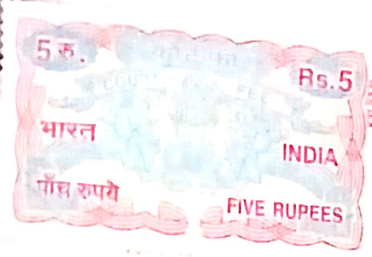 5 रु.
कोर्ट फी
Rs.5
COURT FEE
भारत
INDIA
पाँच रुपये
FIVE RUPEES